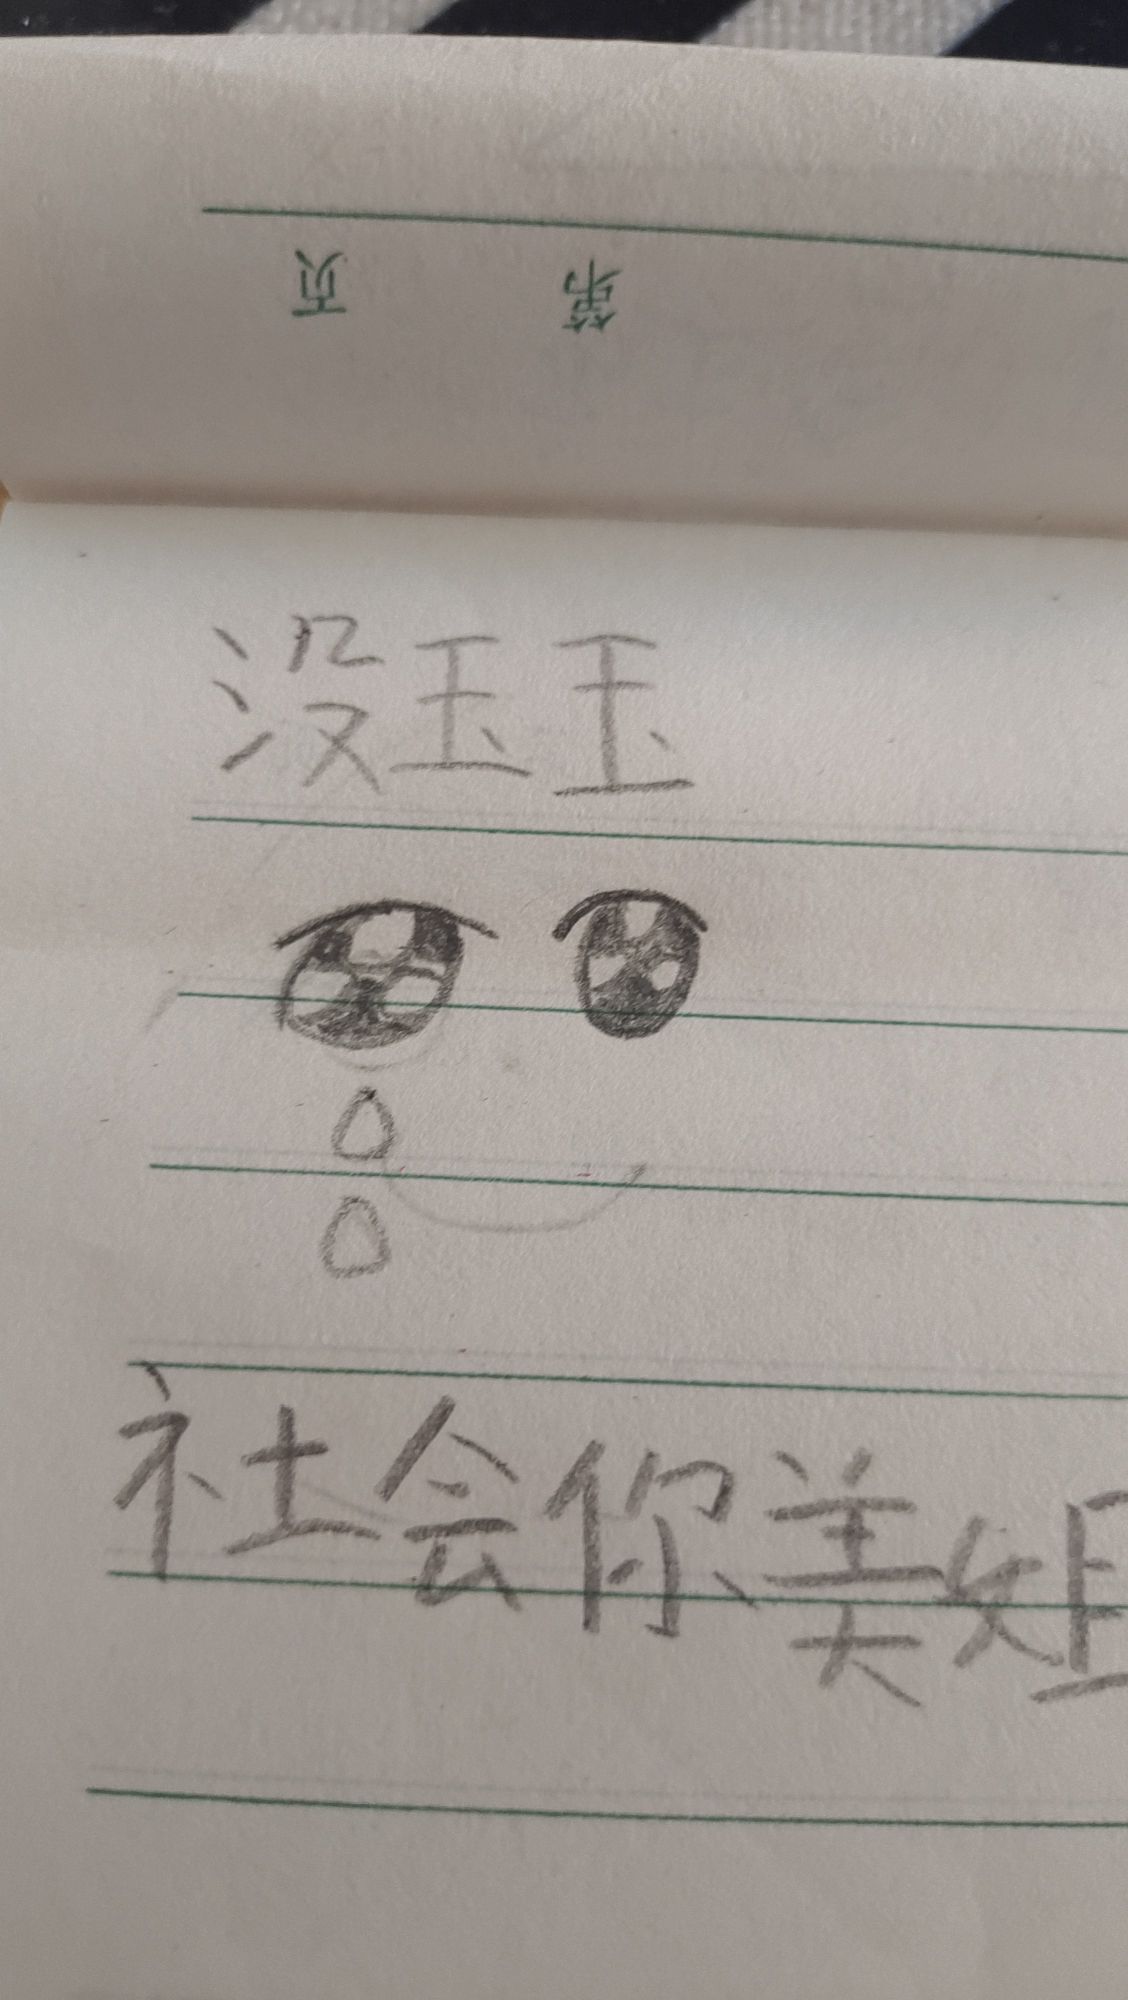 页 第
没玉玉
社会你美姐